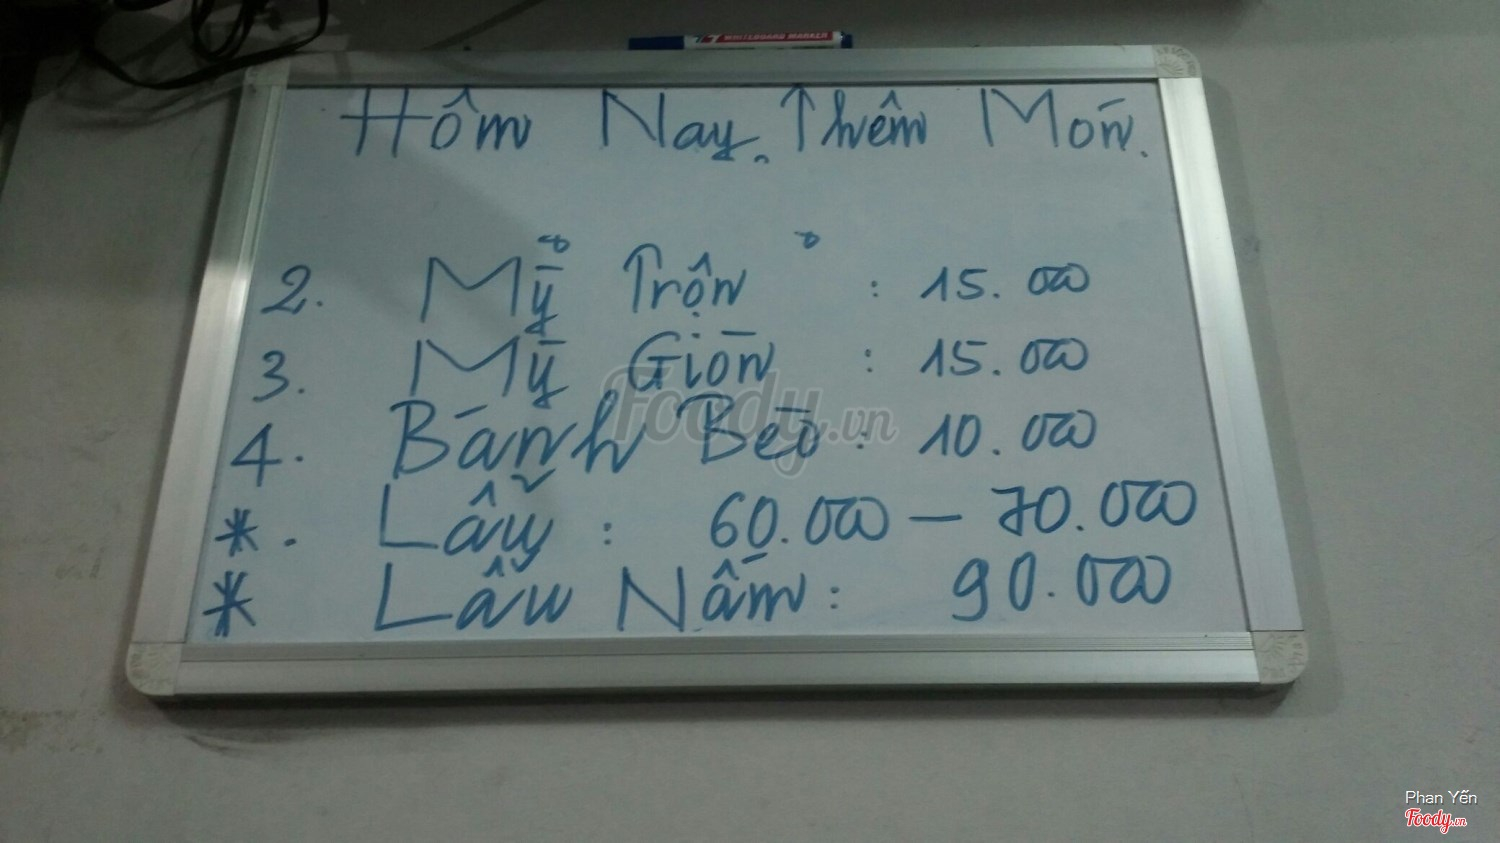 WHITEBOARD MARKER
Hôm Nay. Thêm Món.
2. Mỳ Trộn : 15.000
3. Mỳ Giòn : 15.000
4. Bánh Bèo : 10.000
*. Lẩu : 60.000 - 70.000
* Lẩu Nấm : 90.000
Foody.vn
Phan Yến
Foody.vn